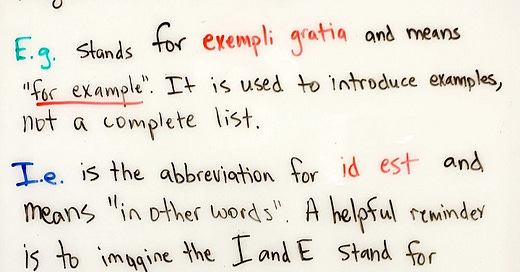 E.g. stands for exempli gratia and means
"for example". It is used to introduce examples,
not a complete list.
I.e. is the abbreviation for id est and
means "in other words". A helpful reminder
is to imagine the I and E stand for